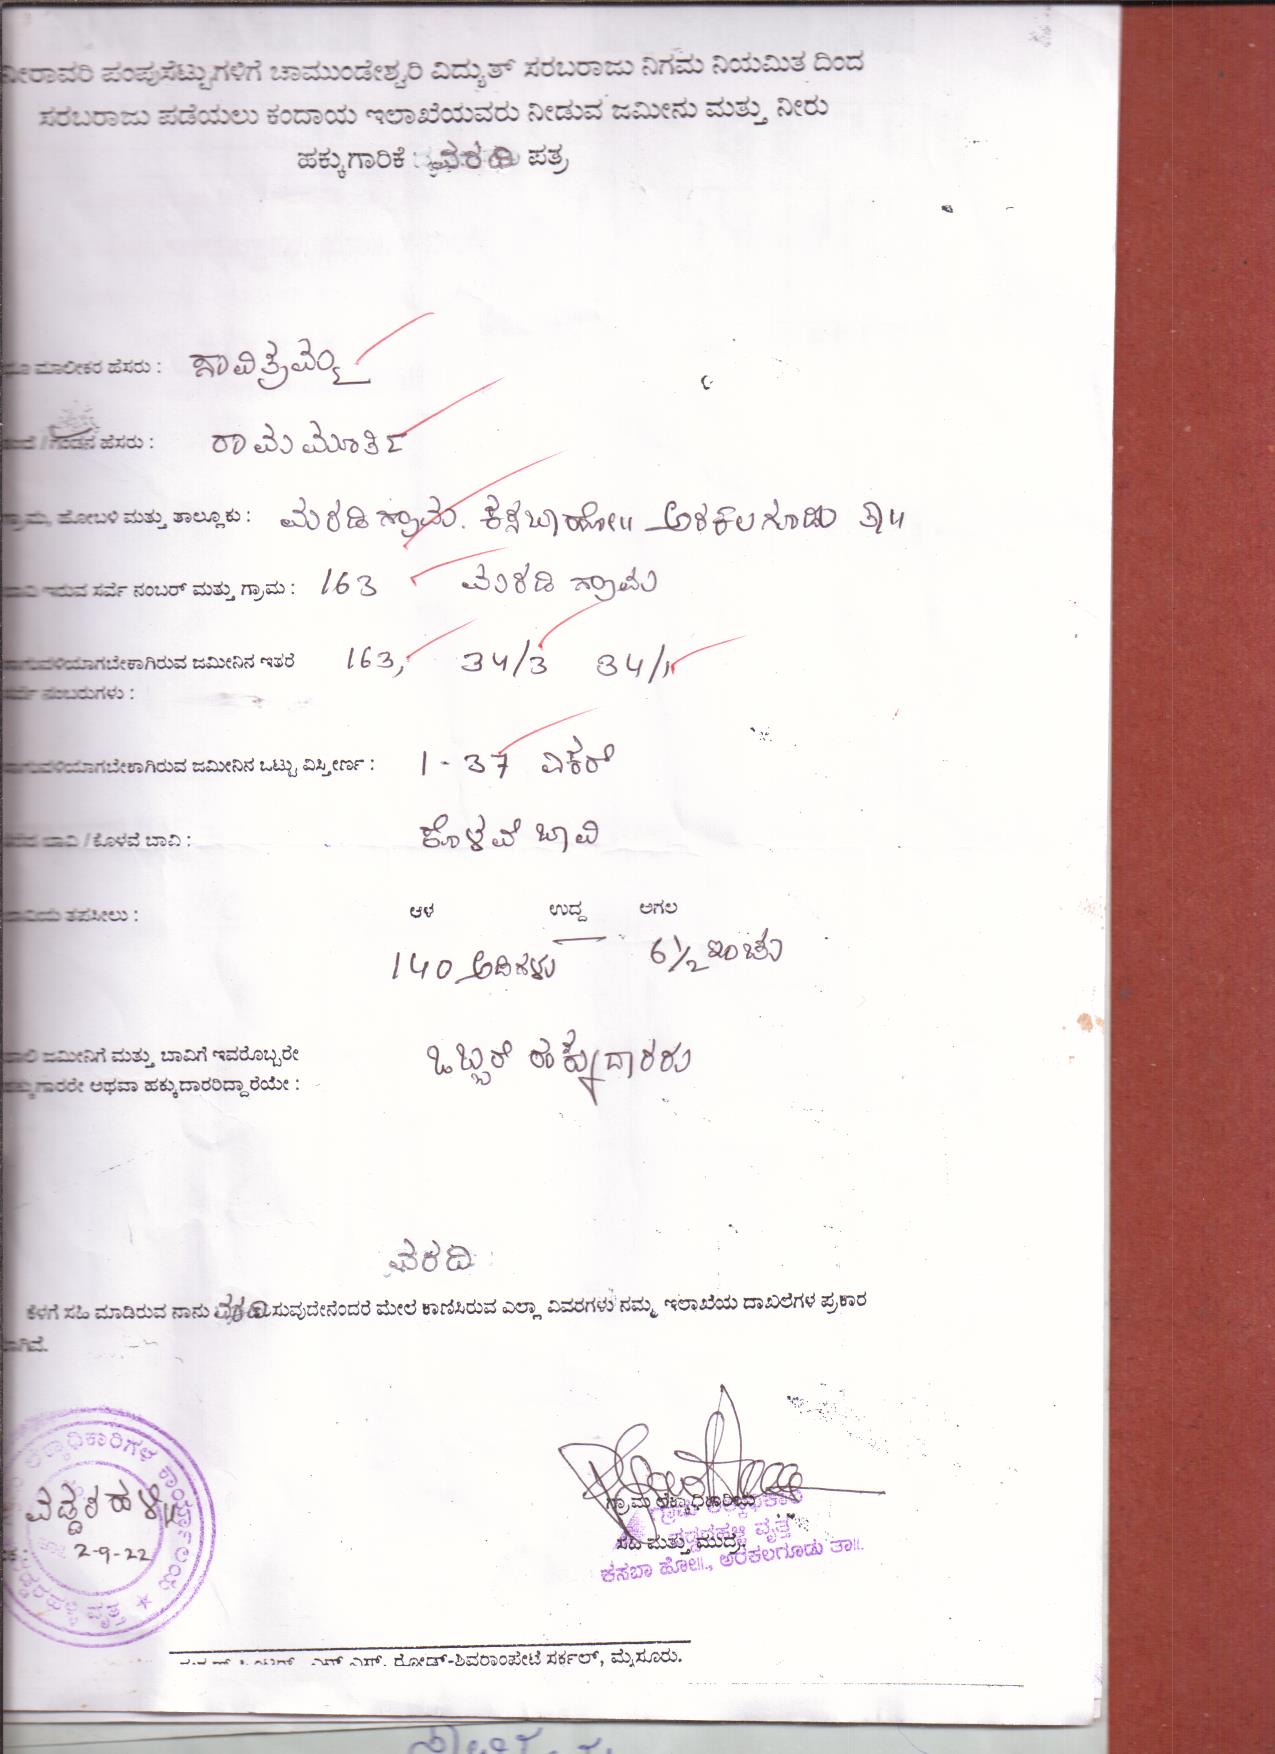 ನೀರಾವರಿ ಪಂಪುಸೆಟ್ಟುಗಳಿಗೆ ಚಾಮುಂಡೇಶ್ವರಿ ವಿದ್ಯುತ್ ಸರಬರಾಜು ನಿಗಮ ನಿಯಮಿತ ದಿಂದ
ಸರಬರಾಜು ಪಡೆಯಲು ಕಂದಾಯ ಇಲಾಖೆಯವರು ನೀಡುವ ಜಮೀನು ಮತ್ತು ನೀರು
ಹಕ್ಕುಗಾರಿಕೆ ವರದಿ ಪತ್ರ
ಮಾಲೀಕರ ಹೆಸರು : ಸಾವಿತ್ರಮ್ಮ
ಗಂಡನ ಹೆಸರು : ರಾಮಮೂರ್ತಿ
ಗ್ರಾಮ, ಹೋಬಳಿ ಮತ್ತು ತಾಲ್ಲೂಕು : ಮರಡಿ ಗ್ರಾಮ. ಕಸಬಾ ಹೋ॥ ಅರಕಲಗೂಡು ತಾ॥
ಬಾವಿ ಇರುವ ಸರ್ವೆ ನಂಬರ್ ಮತ್ತು ಗ್ರಾಮ : 163 ಮರಡಿ ಗ್ರಾಮ
ಸಾಗುವಳಿಯಾಗಬೇಕಾಗಿರುವ ಜಮೀನಿನ ಇತರೆ 163, 34/3 34/1
ಸರ್ವೆ ನಂಬರುಗಳು :
ಸಾಗುವಳಿಯಾಗಬೇಕಾಗಿರುವ ಜಮೀನಿನ ಒಟ್ಟು ವಿಸ್ತೀರ್ಣ : 1-37 ಎಕರೆ
ತೆರೆದ ಬಾವಿ / ಕೊಳವೆ ಬಾವಿ : ಕೊಳವೆ ಬಾವಿ
ಬಾವಿಯ ತಪಸೀಲು : ಆಳ ಉದ್ದ ಅಗಲ
140 ಅಡಿಗಳು — 6½ ಇಂಚು
ಜಮೀನಿಗೆ ಮತ್ತು ಬಾವಿಗೆ ಇವರೊಬ್ಬರೇ ಒಬ್ಬರೆ ಹಕ್ಕುದಾರರು
ಹಕ್ಕುಗಾರರೇ ಅಥವಾ ಹಕ್ಕುದಾರರಿದ್ದಾರೆಯೇ :
ವರದಿ
ಕೆಳಗೆ ಸಹಿ ಮಾಡಿರುವ ನಾನು ವರದಿಸುವುದೇನೆಂದರೆ ಮೇಲೆ ಕಾಣಿಸಿರುವ ಎಲ್ಲಾ ವಿವರಗಳು ನಮ್ಮ ಇಲಾಖೆಯ ದಾಖಲೆಗಳ ಪ್ರಕಾರ
ಗಿವೆ.
ಲೆಕ್ಕಾಧಿಕಾರಿಗಳ ಕಾರ್ಯಾಲಯ
ವಡ್ಡರಹಳ್ಳಿ
2-9-22
ವಡ್ಡರಹಳ್ಳಿ ವೃತ್ತ
ಗ್ರಾಮ ಲೆಕ್ಕಾಧಿಕಾರಿಯ
ಗ್ರಾಮ ಲೆಕ್ಕಾಧಿಕಾರಿ
ವಡ್ಡರಹಳ್ಳಿ ವೃತ್ತ
ಸಹಿ ಮತ್ತು ಮುದ್ರೆ
ಕಸಬಾ ಹೋ॥., ಅರಕಲಗೂಡು ತಾ॥.
ಎಸ್. ರೋಡ್-ಶಿವರಾಂಪೇಟೆ ಸರ್ಕಲ್, ಮೈಸೂರು.